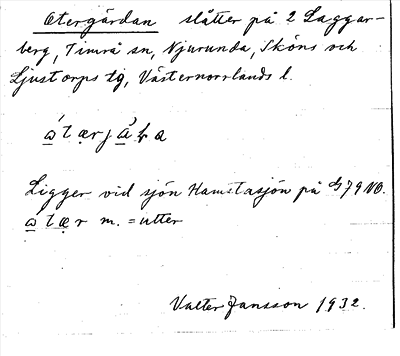 Otergärdan slåtter på 2 Laggar-
berg, Timrå sn, Njurunda, Sköns och
Ljustorps tg, Västernorrlands l.
Ligger vid sjön Hamstasjön på G79 NO.
m. = utter
Valter Jansson 1932.